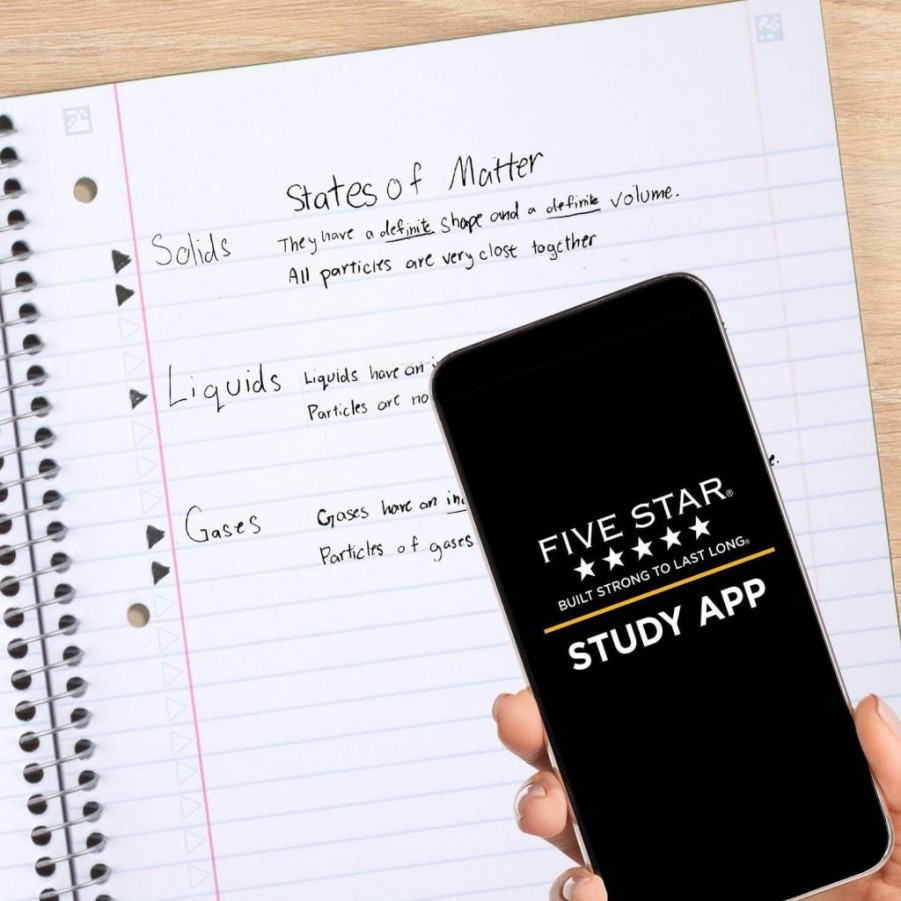 States of Matter
Solids They have a definite shape and a definite volume.
All particles are very clost together
Liquids Liquids have an
Particles are no
Gases Gases have an in
Particles of gases
FIVE STAR®
BUILT STRONG TO LAST LONG®
STUDY APP